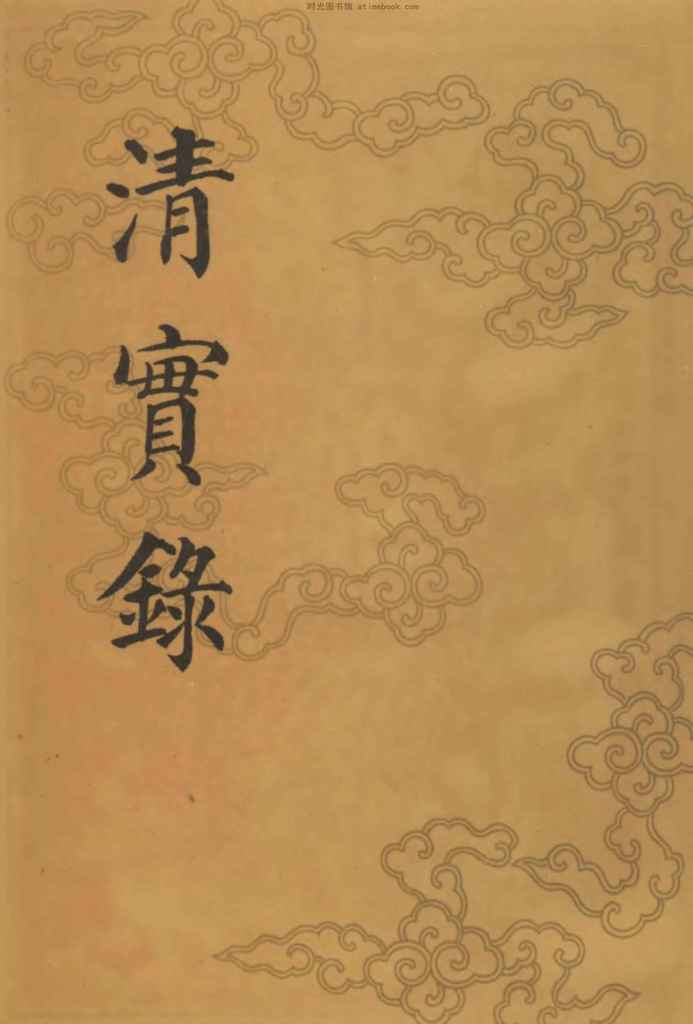 时光图书馆 atimebook.com
清實錄